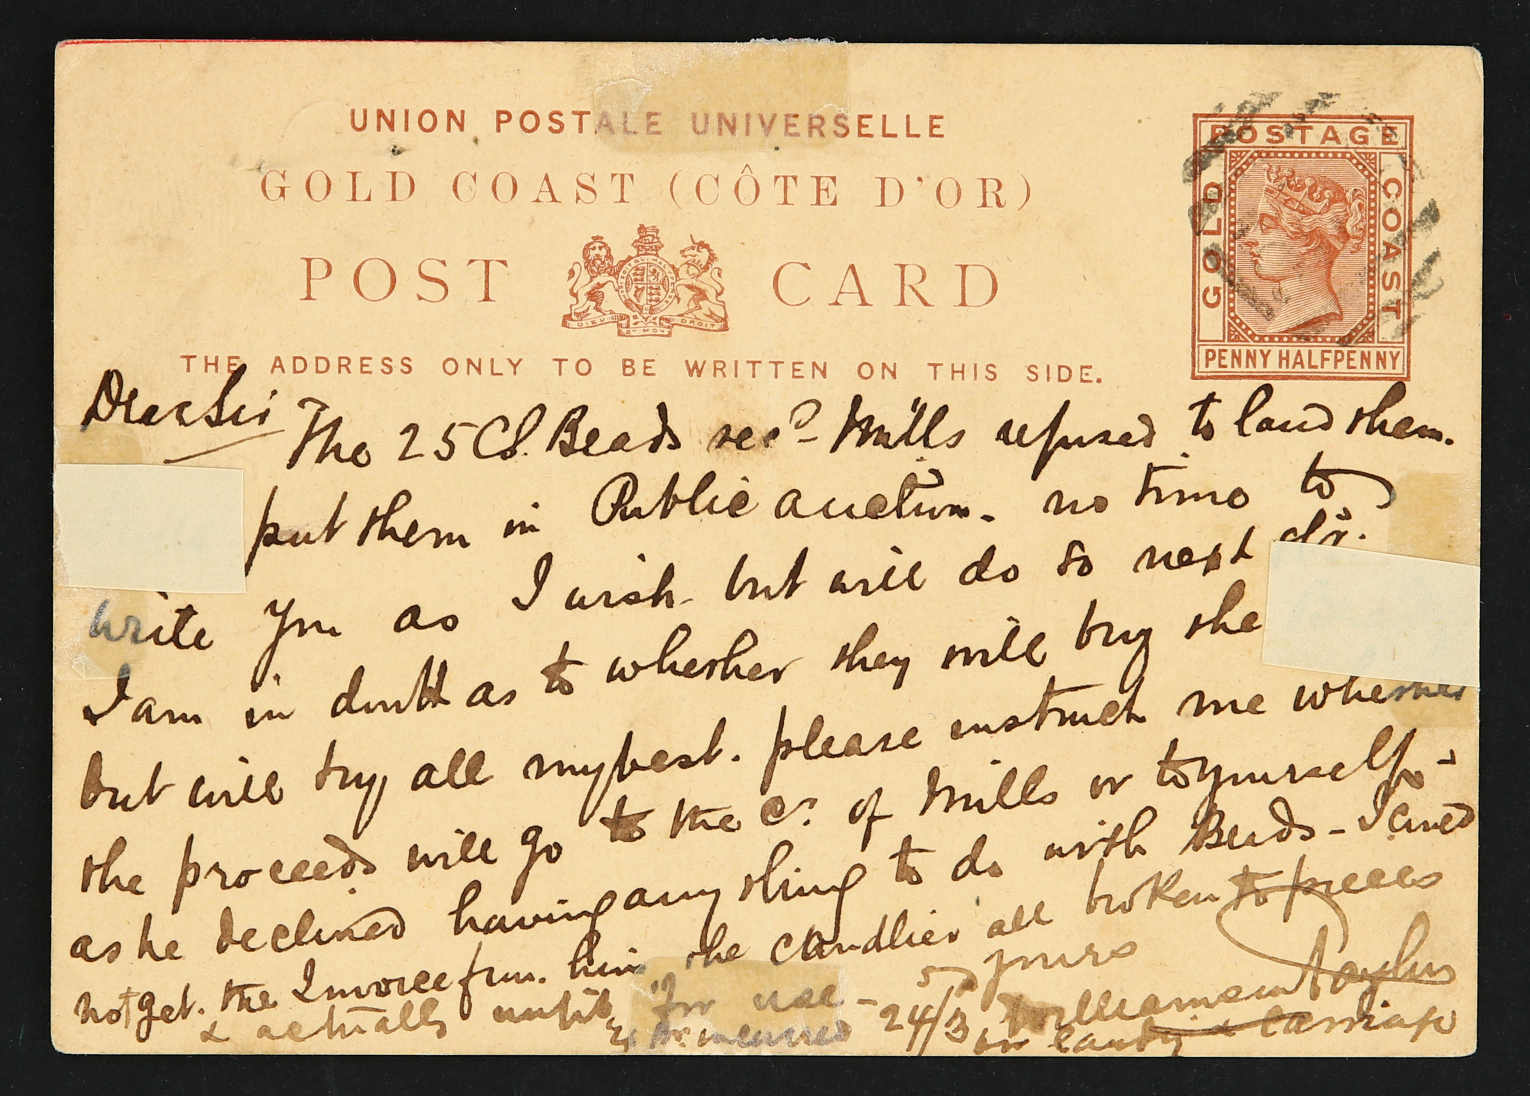 UNION POSTALE UNIVERSELLE
GOLD COAST (CÔTE D'OR)
POST CARD
DIEU ET MON DROIT
THE ADDRESS ONLY TO BE WRITTEN ON THIS SIDE.
POSTAGE
GOLD COAST
PENNY HALFPENNY
Dear Sir
The 25 Cs. Beads recd - Mills refused to land them.
put them in Public auction. no time to
write you as I wish but will do so next
I am in doubt as to whether they will buy the
but will try all my best. please instruct me whether
the proceeds will go to the of Mills or to yourself -
as he declined having any thing to do with Beads - I
not get the Invoice from him the all broken to pieces
& actually unfit for use - 24/3 yours
Williamson Taylor